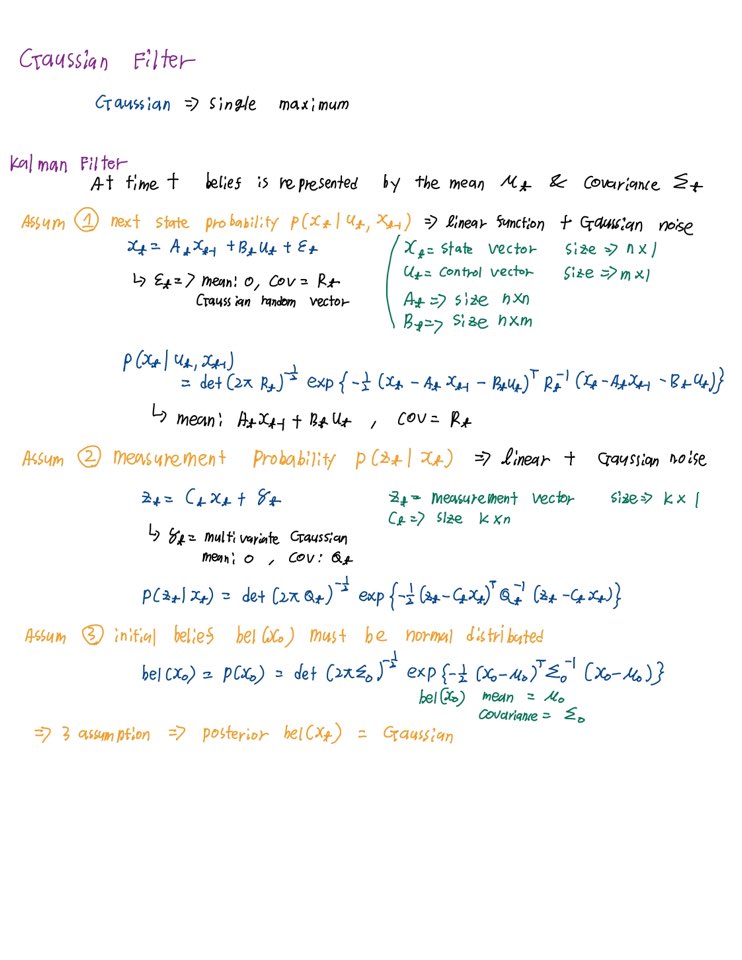 Gaussian Filter
Gaussian => single maximum
Kalman Filter
At time t belief is represented by the mean μₜ & covariance Σₜ
Assum ① next state probability p(xₜ | uₜ, xₜ₋₁) => linear function + Gaussian noise
xₜ = Aₜxₜ₋₁ + Bₜuₜ + εₜ
xₜ = state vector size => n×1
↳ εₜ => mean: 0, cov = Rₜ
uₜ = control vector size => m×1
Gaussian random vector
Aₜ => size n×n
Bₜ => size n×m
p(xₜ | uₜ, xₜ₋₁)
= det(2π Rₜ)^-½ exp{-½ (xₜ - Aₜ xₜ₋₁ - Bₜuₜ)ᵀ Rₜ⁻¹ (xₜ - Aₜxₜ₋₁ - Bₜuₜ)}
↳ mean: Aₜxₜ₋₁ + Bₜuₜ , cov = Rₜ
Assum ② measurement probability p(zₜ | xₜ) => linear + Gaussian noise
zₜ = Cₜxₜ + δₜ
zₜ = measurement vector size => k×1
Cₜ => size k×n
↳ δₜ = multivariate Gaussian
mean: 0 , cov: Qₜ
p(zₜ | xₜ) = det(2π Qₜ)^-½ exp{-½ (zₜ - Cₜxₜ)ᵀ Qₜ⁻¹ (zₜ - Cₜxₜ)}
Assum ③ initial belief bel(x₀) must be normal distributed
bel(x₀) = p(x₀) = det(2πΣ₀)^-½ exp{-½ (x₀-μ₀)ᵀ Σ₀⁻¹ (x₀-μ₀)}
bel(x₀) mean = μ₀
covariance = Σ₀
=> 3 assumption => posterior bel(xₜ) = Gaussian